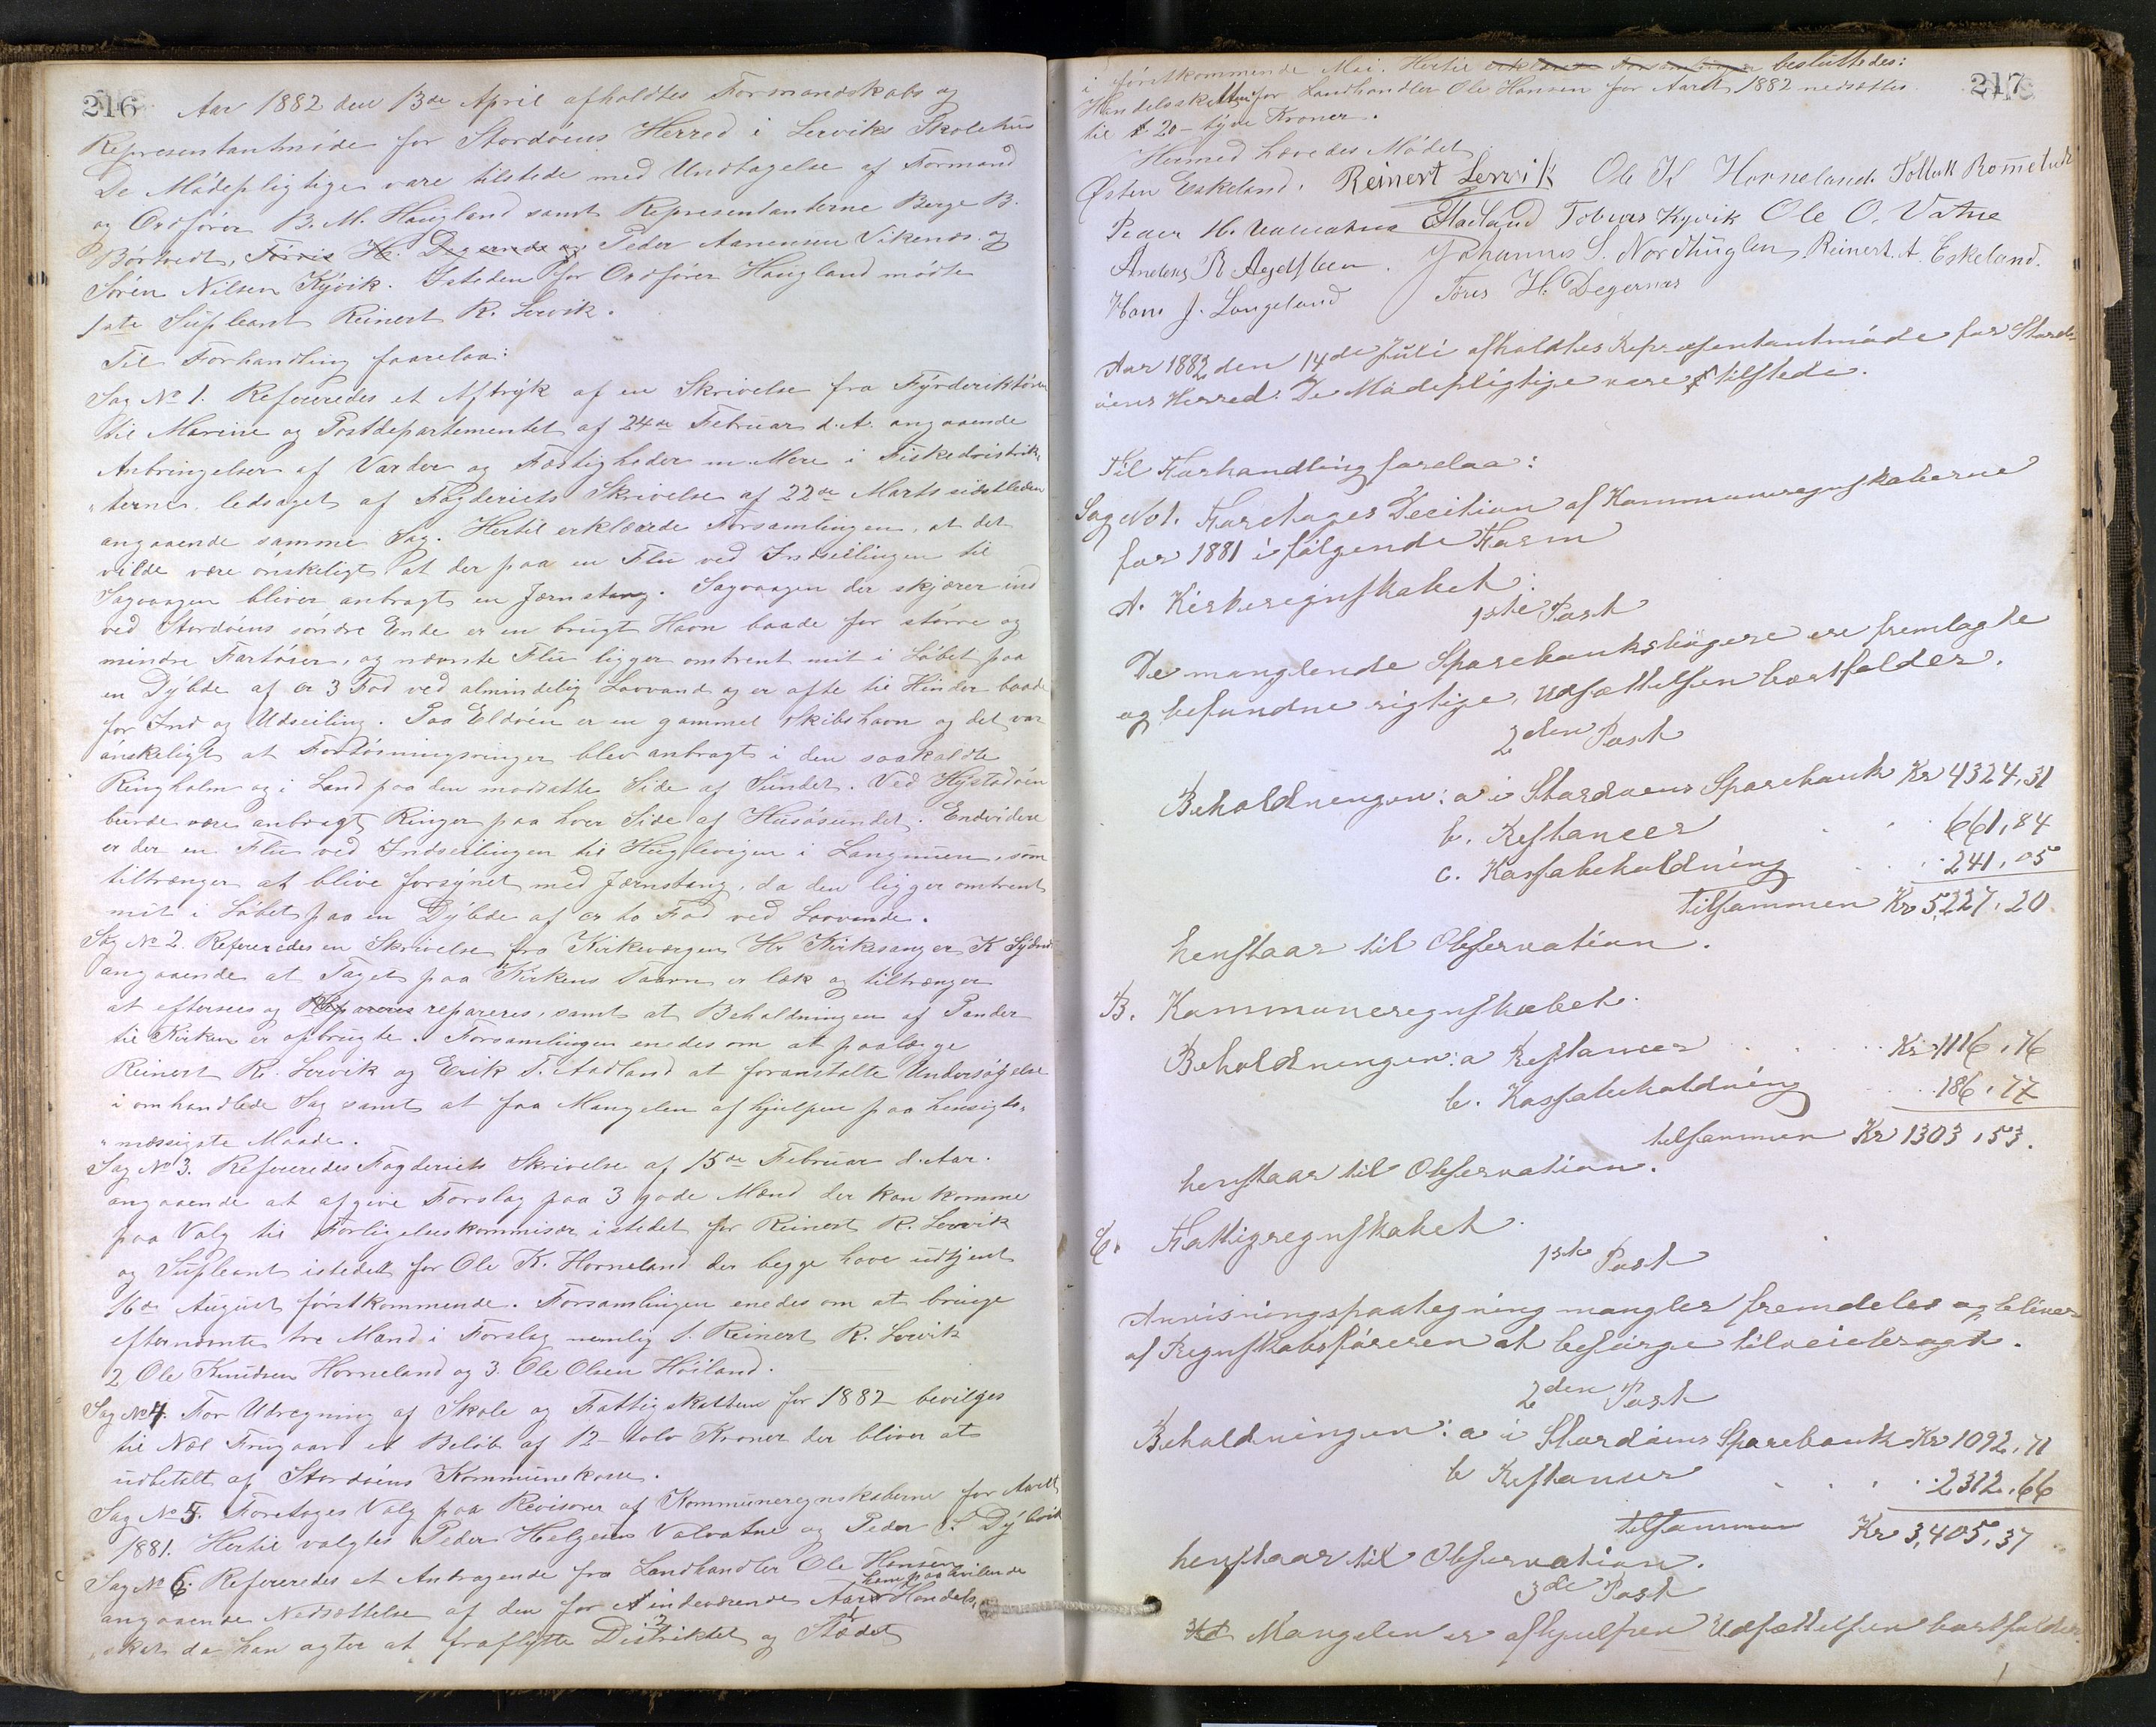 216
Aar 1882 den 13de April afholdtes Formandskabs og
Representantmöde for Stordöens Herred i Lerviks Skolehus
De Mödepligtige vare tilstede med Undtagelse af Formand
og Ordförer B. M. Haugland samt Representanterne Berge B.
Börtvedt, Törris H. Degernæs og Peder Aanensen Vikenæs og
Sören Nilsen Kyvik. Isteden for Ordförer Haugland mödte
1ste Supleant Reinert R. Lervik.
Til Forhandling foorelaa:
Sag No 1. Refereredes et Aftryk af en Skrivelse fra Fyrderiktören
til Marine og Postdepartementet af 24de Februar d. A. angaaende
Anbringelser af Varder og Fæstigheder m. Mere i Fiskedistrik-
"terne, ledsaget af Fogderiets Skrivelse af 22de Marts sidstleden
angaaende samme Sag. Hertil erklærede Forsamlingen, at det
vilde være önskeligt at der paa en Flu ved Indseilingen til
Sagvaagen bliver anbragt en Jernstang. Sagvaagen der skjærer ind
ved Stordöens söndre Ende er en brugt Havn baade for större og
mindre Fartöier, og nævnte Flu ligger omtrent mit i Löbet paa
en Dybde af cr 3 Fod ved almindelig Lavvand og er ofte til Hinder baade
for Ind og Udseiling. Paa Eldöen er en gammel Skibshavn og det var
önskeligt at Fortöiningsringer blev anbragt i den saakaldte
Ringholm og i Land paa den modsatte Side af Sundet. Ved Hystadöen
burde være anbragt Ringer paa hver Side af Husösundet. Endvidere
er der en Flu ved Indseilingen til Huglevigen i Langenuen, som
tiltrænger at blive forsynet med Jærnstang, da den ligger omtrent
mit i Löbet paa en Dybde af cr to Fod ved Lavvande.
Sag No 2. Refereredes en Skrivelse fra Kirkeværgen Hr Kirkesanger K
angaaende at Taget paa Kirkens Taarn er læk og tiltrænger
at eftersees og Repareres repareres, samt at Beholdningen af Pander
til Kirken er opbrugte. Forsamlingen enedes om at paalægge
Reinert R. Lervik og Erik T. Aadland at foranstalte Undersögelse
i omhandlede Sag samt at faa Mangelen afhjulpen paa hensigts-
"mæssigste Maade.
Sag No 3. Refereredes Fogderiets Skrivelse af 15de Februar d. Aar.
angaaende at afgive Forslag paa 3 gode Mænd der kan komme
paa Valg til Forligelseskommisær istedet for Reinert R. Lervik
og Supleant istedet for Ole K. Horneland der begge have udtjent
16de August förstkommende. Forsamlingen enedes om at bringe
efternævnte tre Mænd i Forslag nemlig 1. Reinert R. Lervik
2 Ole Knudsen Horneland og 3. Ole Olsen Höiland.
Sag No 4. For Udregning af Skole og Fattigskatten for 1882 bevilges
til Nils Frugaard et Belöb af 12 - tolv Kroner der bliver at
udbetalt af Stordöens Kommunekasse.
Sag No 5. Foretoges Valg paa Revisorer af Kommuneregnskaberne for Aaret
1881. Hertil valgtes Peder Helgesen Valvatne og Peder S. Dybvik
Sag No 6. Refereredes et Andragende fra Landhandler Ole Hansen
angaaende Nedsættelse af den for indeværende Aar ham paahvilende Handels-
"skat da han agter at fraflytte Distriktet og Stædet
217
i förstkommende Mai. Hertil erklærede Forsamlingen besluttedes:
Handelsskatten for Landhandler Ole Hansen for Aaret 1882 nedsættes
til 20 - tyve Kroner.
Hermed hævedes Mödet
Östen Eskeland. Reinert Lervik Ole K Horneland. Tollek Rommetvedt
Peder H. Valvatne Tobias Kyvik Ole O. Vatne
Anders R Agdesteen. Johannes S. Nordhuglen Reinert. A. Eskeland.
Hans J. Langeland Töres H. Degernæs
Aar 1882 den 14de Juli afholdtes Repræsentantmöde for Stord-
öens Herred. De Mödepligtige vare tilstede.
Til Forhandling forelaa:
Sag No 1. Foretoges Decition af Kommuneregnskaberne
for 1881 i fölgende Form
A. Kirkeregnskabet:
1ste Post
De manglende Sparebanksbögere ere fremlagte
og befundne rigtige, Udsættelsen bortfalder.
2den Post
Beholdningen: a i Stordöens Sparebank Kr 4324,31
b. Restancer . . 661,84
c. Kassabeholdning . . 241,05
tilsammen Kr 5,227,20
henstaar til Observation.
B. Kommuneregnskabet.
Beholdningen: a Restancer . . . Kr 1116,76
b. Kassabeholdning . . 186,77
tilsammen Kr 1303,53.
henstaar til Observation.
C. Fattigregnskabet.
1ste Post
Anvisningspaategning mangler fremdeles og bliver
af Regnskabsföreren at besörge tilveiebragt.
2den Post
Beholdningen: a i Stordöens Sparebank Kr 1092,71
b Restancer . . . 2312,66
tilsammen Kr 3,405,37
henstaar til Observation.
3de Post
Mangelen er afhjulpen Udsættelsen bortfalder.